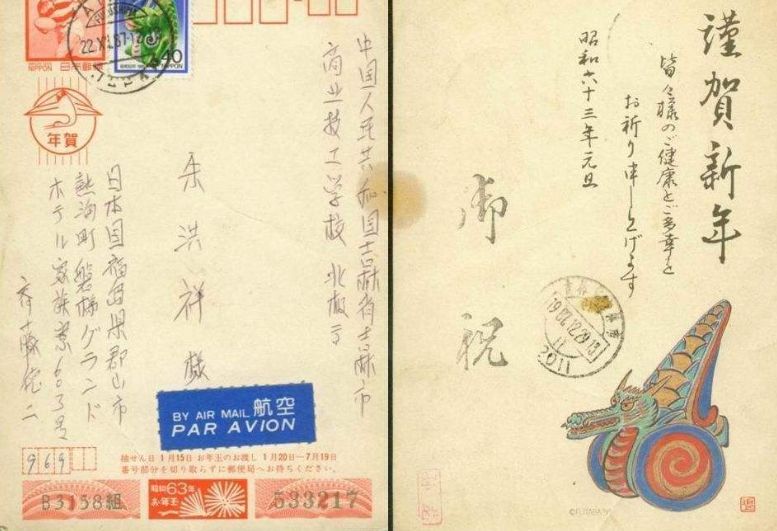 NIPPON
日本郵便
22.XII.87
40
NIPPON
年賀
中国人民共和国吉林省吉林市
商业技工学校
洪祥様
日本国福島県郡山市
熱海町磐梯グランド
ホテル家族寮603号
BY AIR MAIL 航空
PAR AVION
969
抽せん日 1月15日 お年玉のお渡し 1月20日~7月19日
番号部分を切り取らずに郵便局へお持ちください。
B3158組
昭和63年
お年玉
533217
謹賀新年
皆々様のご健康とご多幸を
お祈り申し上げます
昭和六十三年元旦
御祝